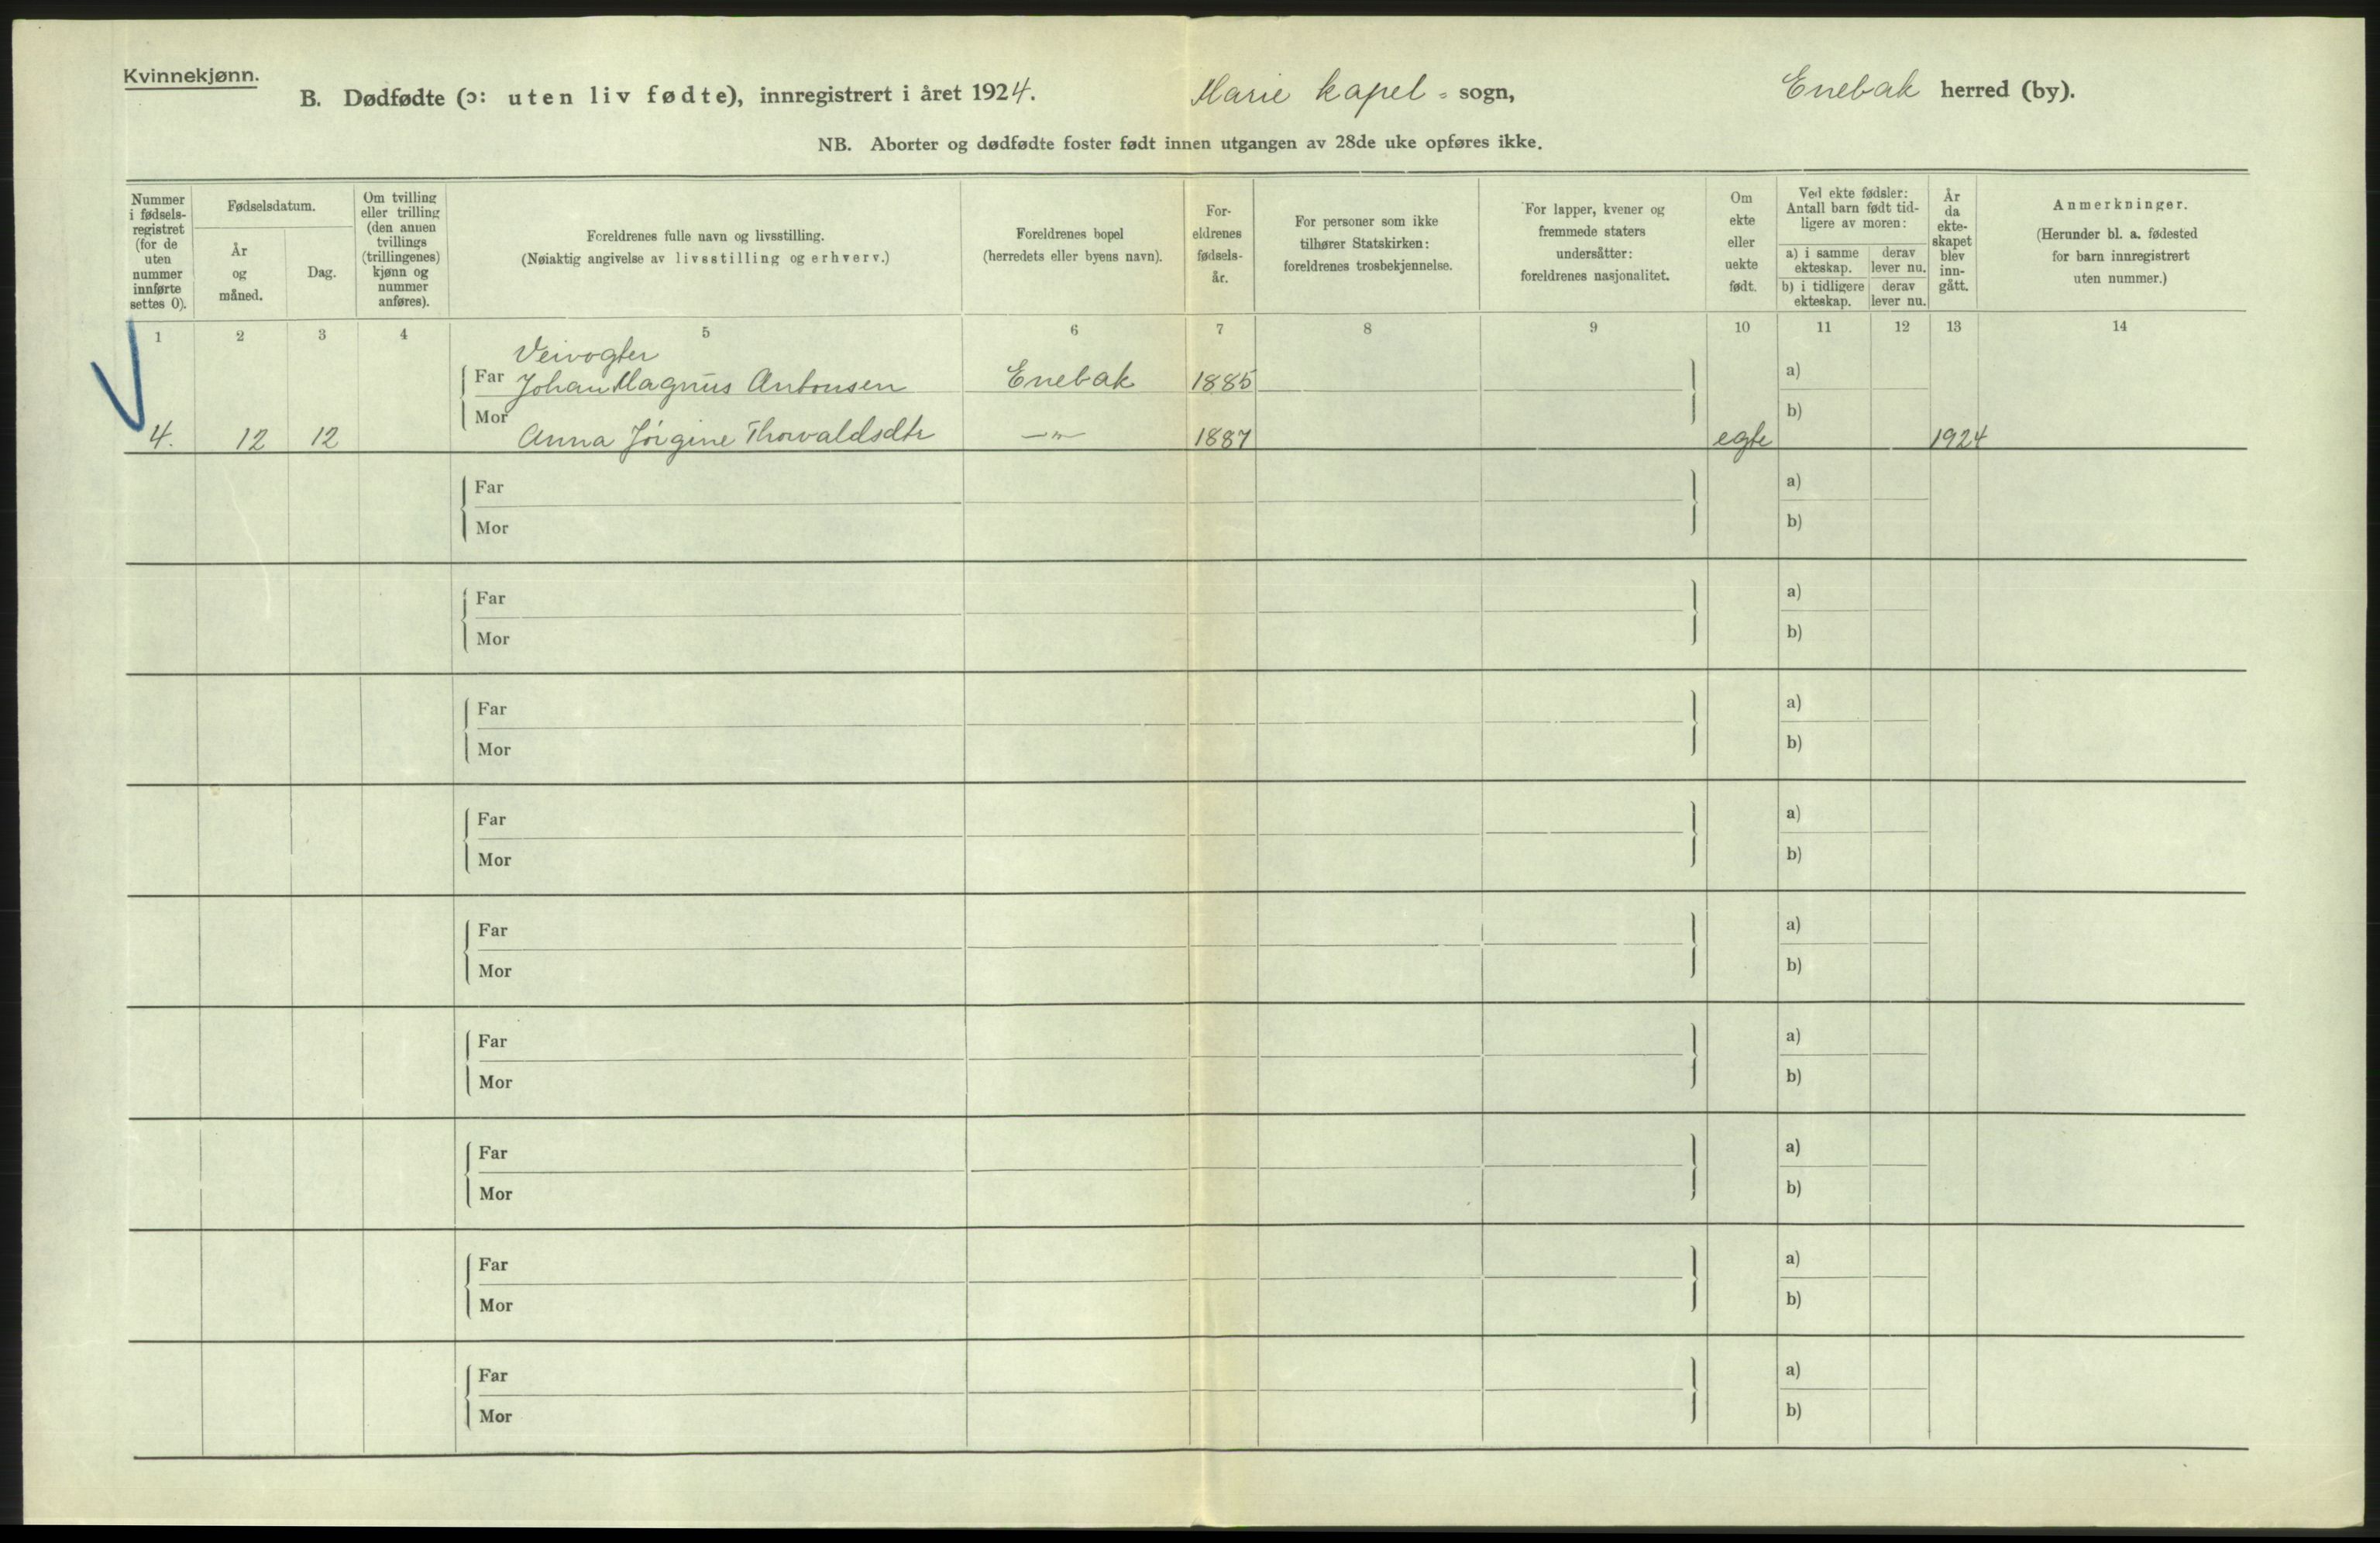 Kvinnekjønn.
B. Dødfødte (ɔ: uten liv fødte), innregistrert i året 1924. Marie kapel - sogn, Enebak herred (by).
NB. Aborter og dødfødte foster født innen utgangen av 28de uke opføres ikke.
Nummer i fødsels-registret (for de uten nummer innførte settes 0).
Fødselsdatum.
År og måned.
Dag.
Om tvilling eller trilling (den annen tvillings (trillingenes) kjønn og nummer anføres).
Foreldrenes fulle navn og livsstilling.
(Nøiaktig angivelse av livsstilling og erhverv.)
Foreldrenes bopel
(herredets eller byens navn).
For-eldrenes fødsels-år.
For personer som ikke tilhører Statskirken: foreldrenes trosbekjennelse.
For lapper, kvener og fremmede staters undersåtter: foreldrenes nasjonalitet.
Om ekte eller uekte født.
Ved ekte fødsler: Antall barn født tid-ligere av moren:
a) i samme ekteskap. derav lever nu.
b) i tidligere ekteskap. derav lever nu.
År da ekte-skapet blev inn-gått.
Anmerkninger.
(Herunder bl. a. fødested for barn innregistrert uten nummer.)
1 2 3 4 5 6 7 8 9 10 11 12 13 14
Veivogter
Far Johan Magnus Antonsen Enebak 1885 a)
Mor b)
4. 12 12 Anna Jørgine Thorvaldsdtr —"— 1887 egte 1924
Far a)
Mor b)
Far a)
Mor b)
Far a)
Mor b)
Far a)
Mor b)
Far a)
Mor b)
Far a)
Mor b)
Far a)
Mor b)
Far a)
Mor b)
Far a)
Mor b)